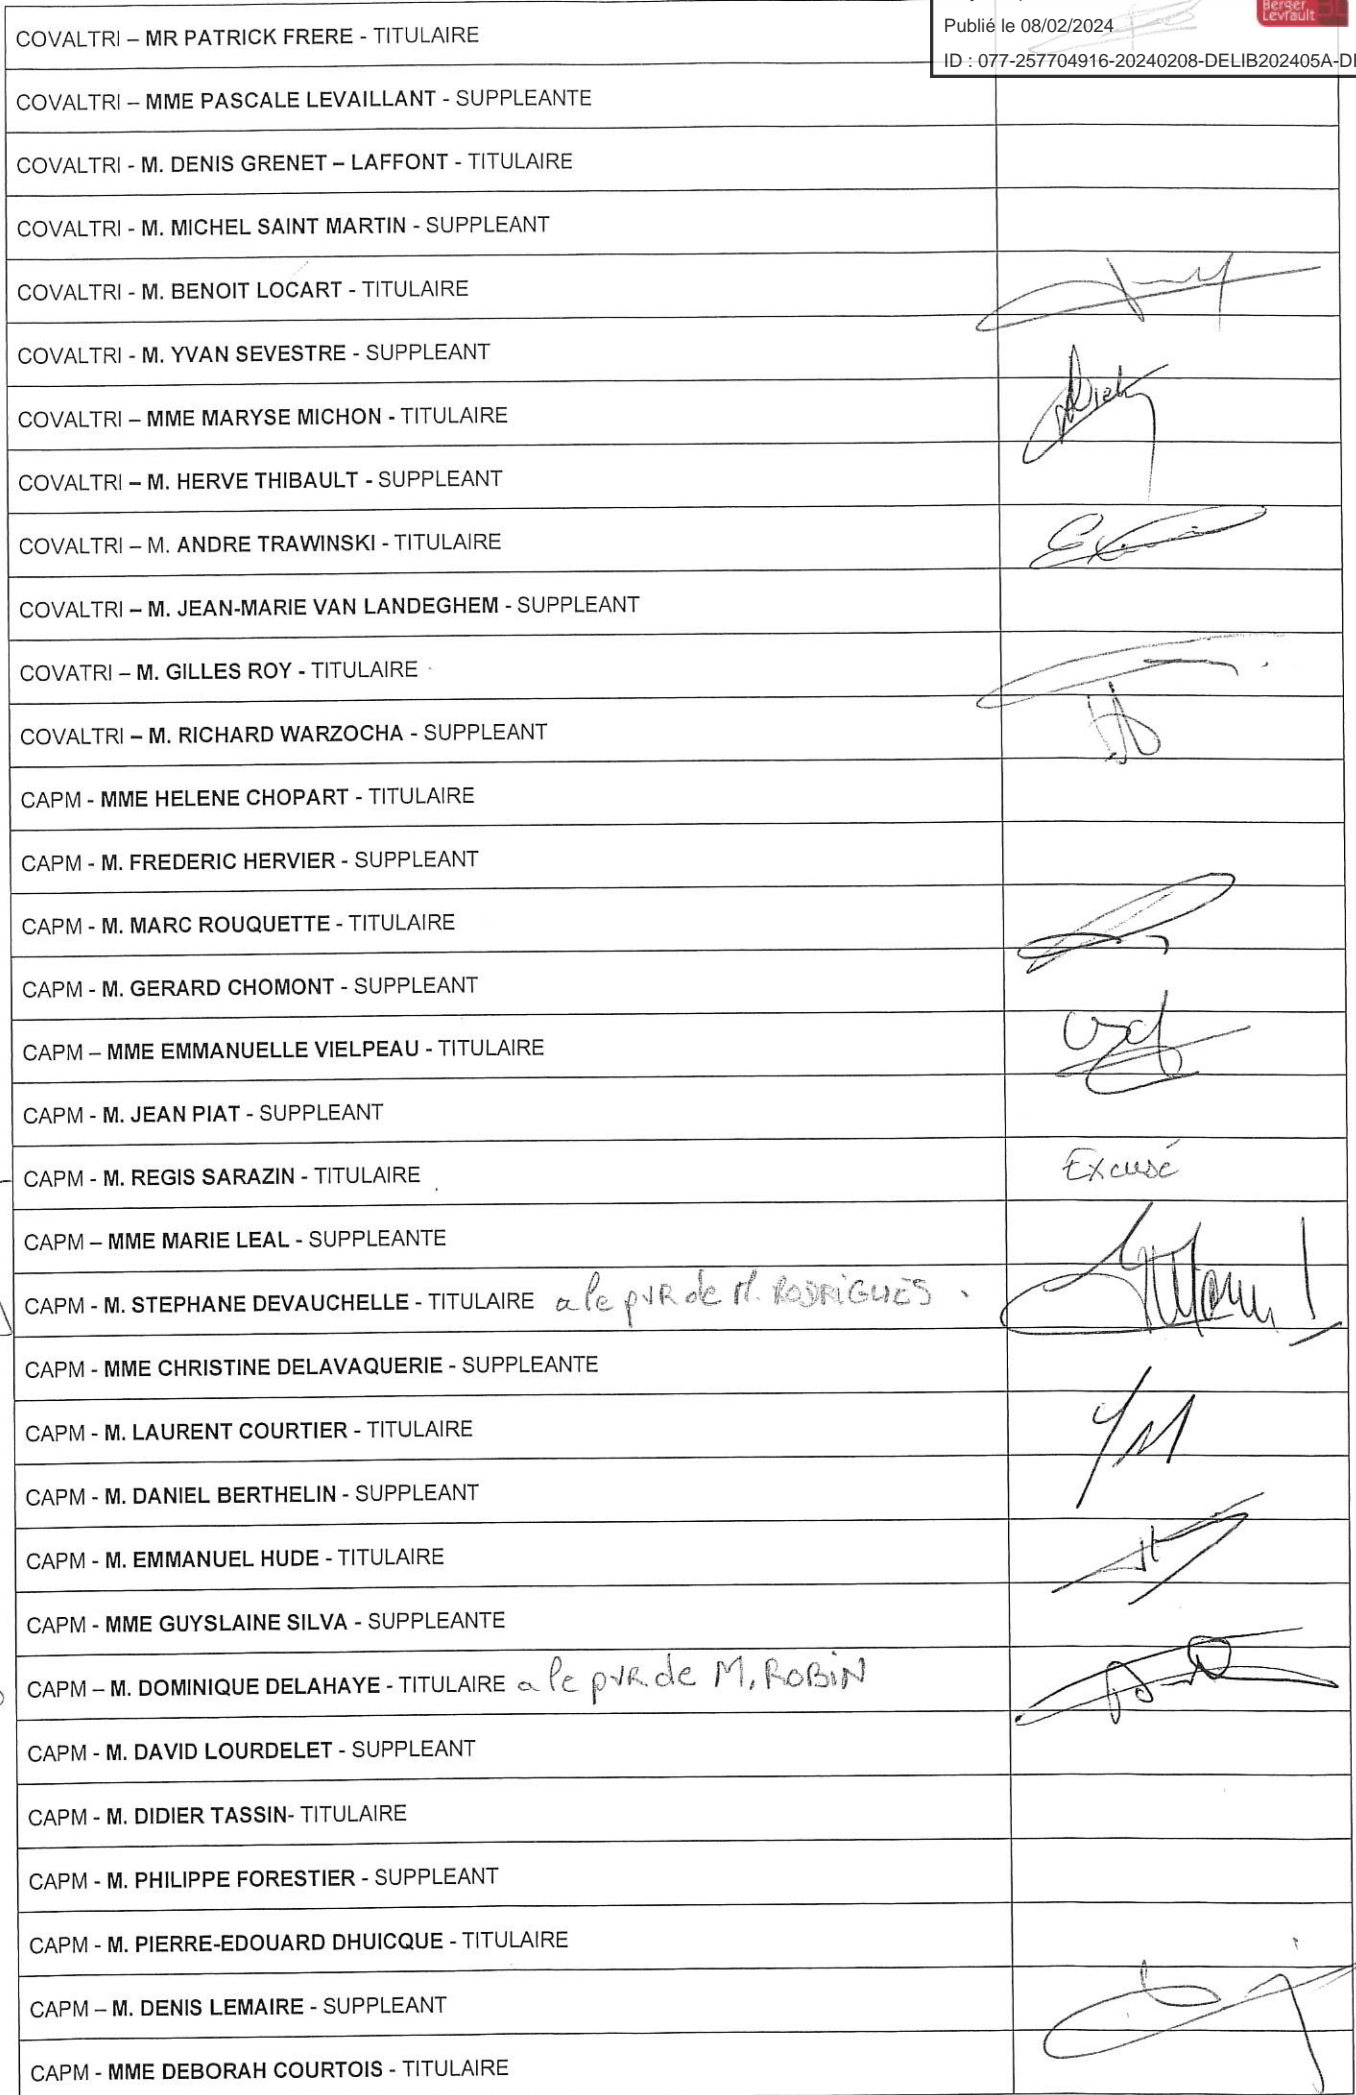 Berger
Levrault
Publié le 08/02/2024
COVALTRI – MR PATRICK FRERE - TITULAIRE
ID : 077-257704916-20240208-DELIB202405A-DE
COVALTRI – MME PASCALE LEVAILLANT - SUPPLEANTE
COVALTRI - M. DENIS GRENET – LAFFONT - TITULAIRE
COVALTRI - M. MICHEL SAINT MARTIN - SUPPLEANT
COVALTRI - M. BENOIT LOCART - TITULAIRE
COVALTRI - M. YVAN SEVESTRE - SUPPLEANT
COVALTRI – MME MARYSE MICHON - TITULAIRE
COVALTRI – M. HERVE THIBAULT - SUPPLEANT
COVALTRI – M. ANDRE TRAWINSKI - TITULAIRE
COVALTRI – M. JEAN-MARIE VAN LANDEGHEM - SUPPLEANT
COVATRI – M. GILLES ROY - TITULAIRE
COVALTRI – M. RICHARD WARZOCHA - SUPPLEANT
CAPM - MME HELENE CHOPART - TITULAIRE
CAPM - M. FREDERIC HERVIER - SUPPLEANT
CAPM - M. MARC ROUQUETTE - TITULAIRE
CAPM - M. GERARD CHOMONT - SUPPLEANT
CAPM – MME EMMANUELLE VIELPEAU - TITULAIRE
CAPM - M. JEAN PIAT - SUPPLEANT
CAPM - M. REGIS SARAZIN - TITULAIRE Excusé
CAPM – MME MARIE LEAL - SUPPLEANTE
CAPM - M. STEPHANE DEVAUCHELLE - TITULAIRE a le pvR de M. RODRIGUES.
CAPM - MME CHRISTINE DELAVAQUERIE - SUPPLEANTE
CAPM - M. LAURENT COURTIER - TITULAIRE
CAPM - M. DANIEL BERTHELIN - SUPPLEANT
CAPM - M. EMMANUEL HUDE - TITULAIRE
CAPM - MME GUYSLAINE SILVA - SUPPLEANTE
CAPM – M. DOMINIQUE DELAHAYE - TITULAIRE a le pvR de M. ROBIN
CAPM - M. DAVID LOURDELET - SUPPLEANT
CAPM - M. DIDIER TASSIN- TITULAIRE
CAPM - M. PHILIPPE FORESTIER - SUPPLEANT
CAPM - M. PIERRE-EDOUARD DHUICQUE - TITULAIRE
CAPM – M. DENIS LEMAIRE - SUPPLEANT
CAPM - MME DEBORAH COURTOIS - TITULAIRE